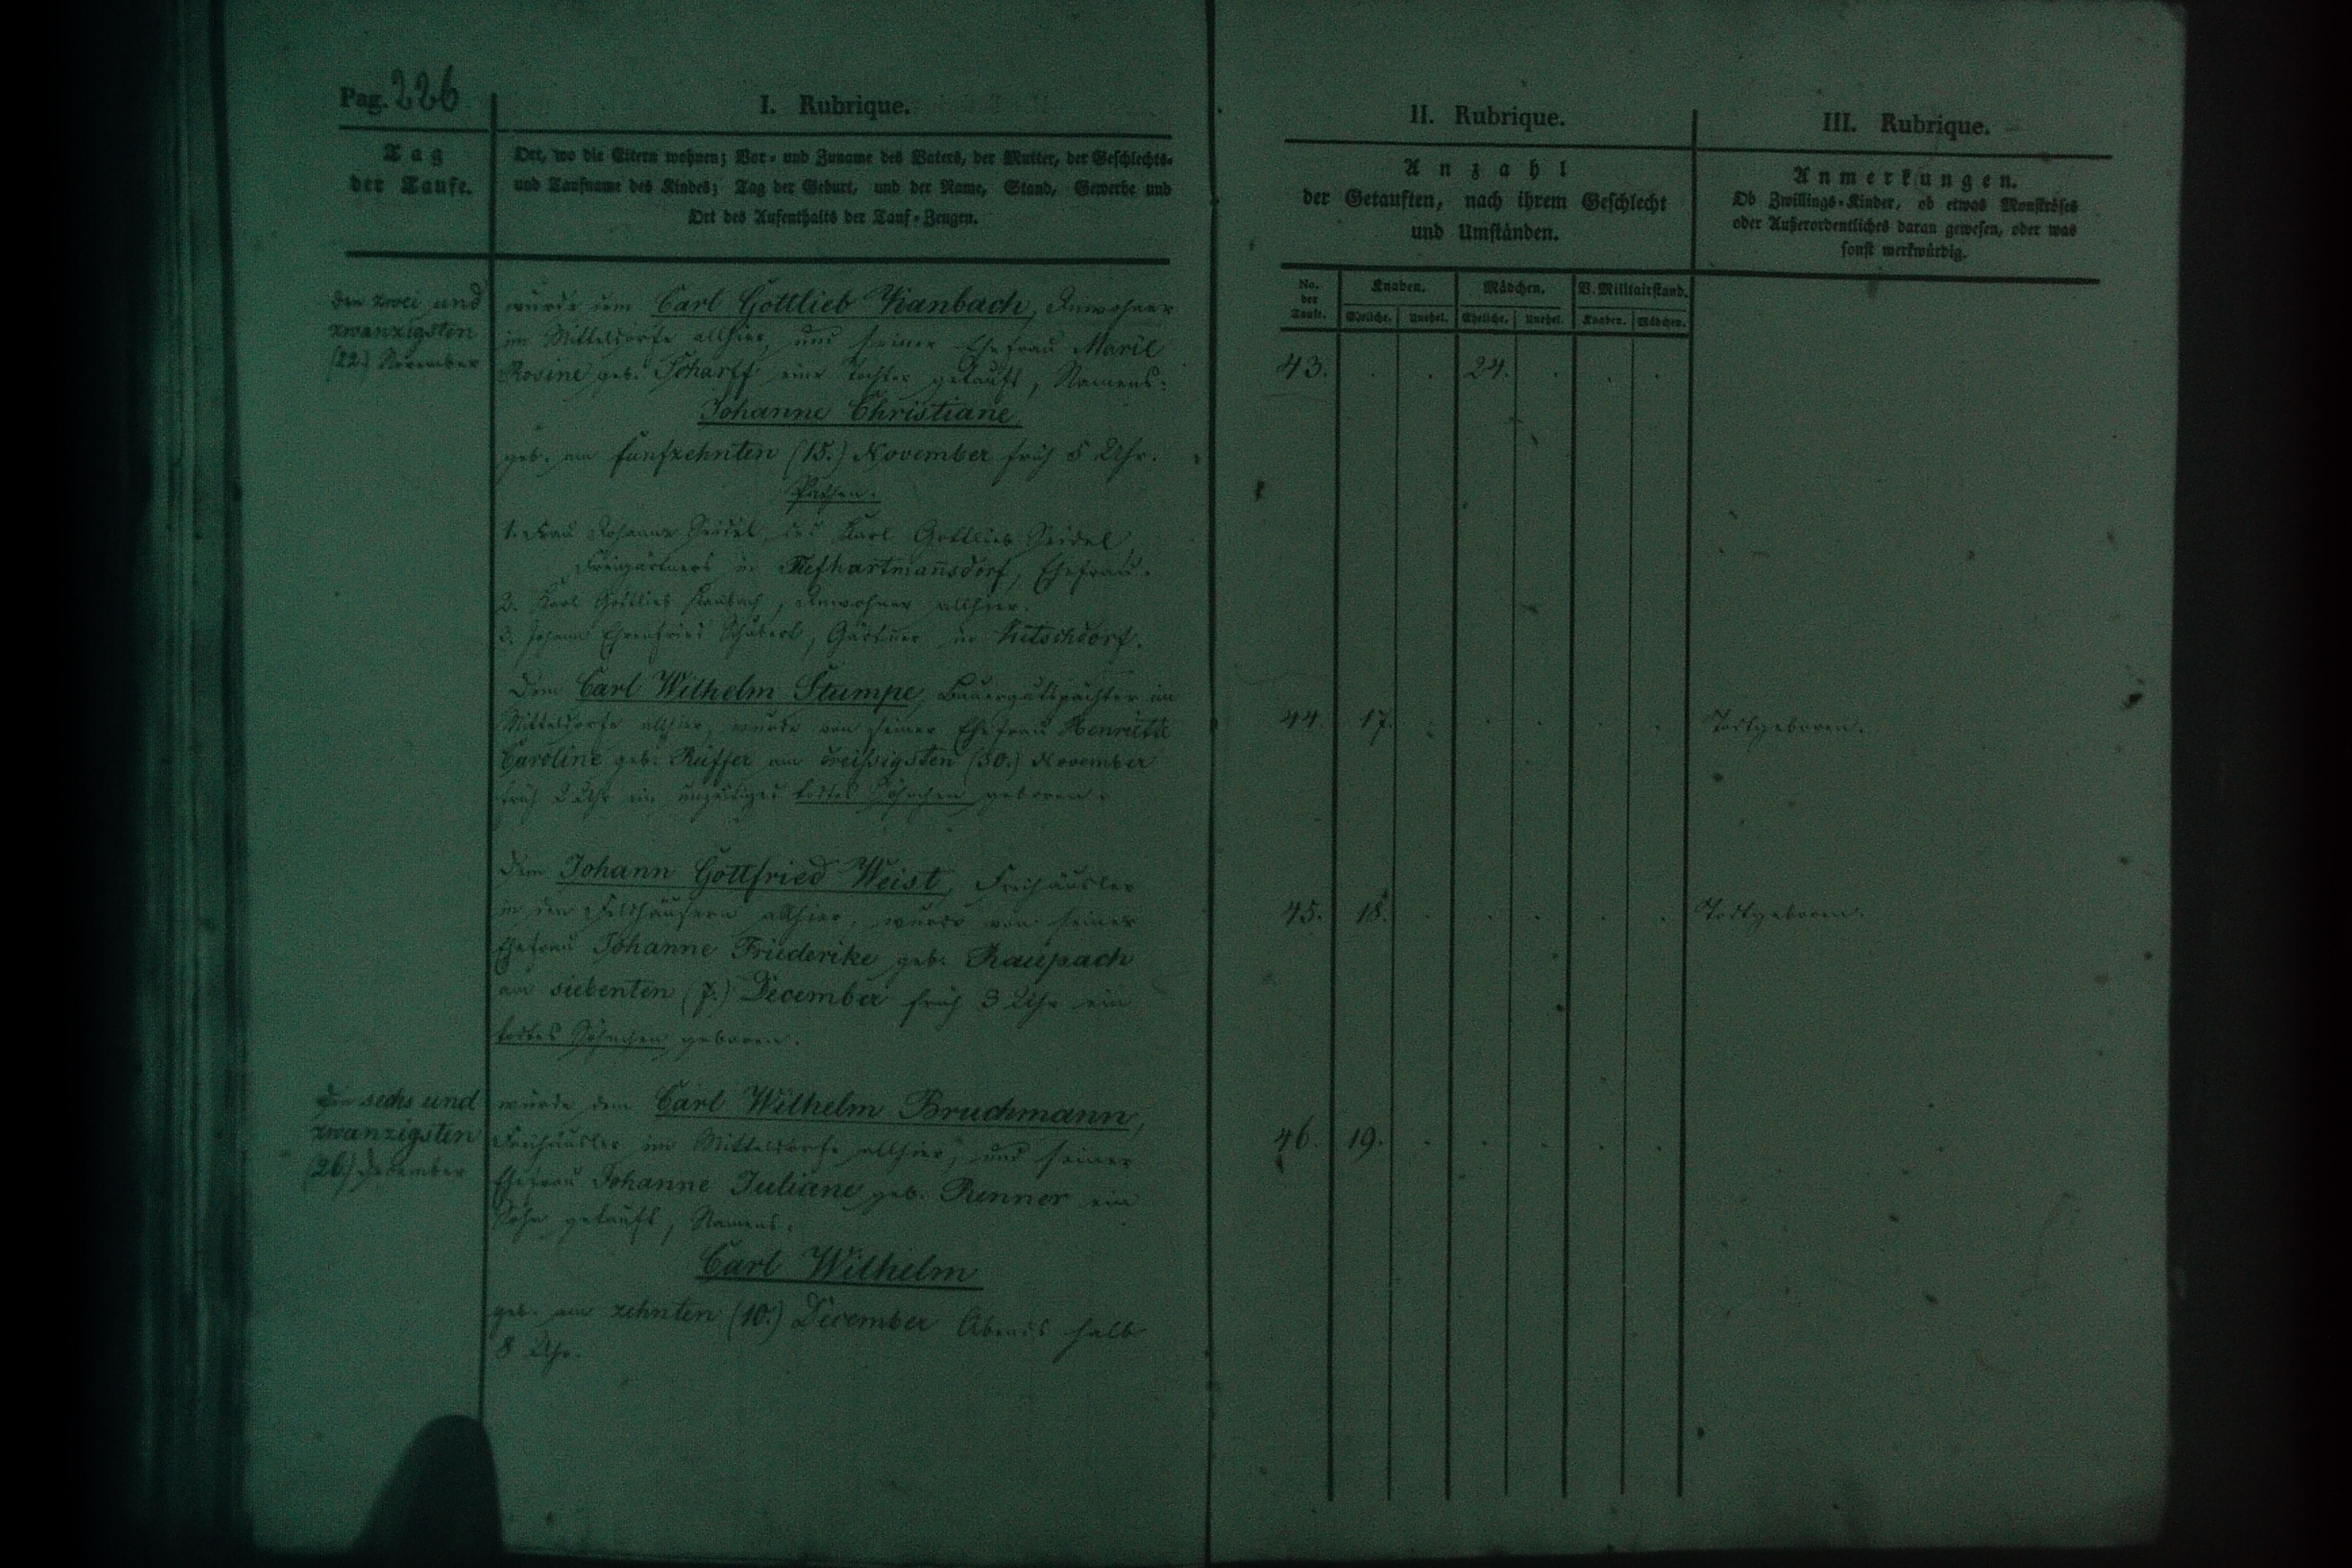 Pag. 226
I. Rubrique.
Tag
der Taufe.
Ort, wo die Eltern wohnen; Vor- und Zuname des Vaters, der Mutter, der Geschlechts-
und Taufname des Kindes; Tag der Geburt, und der Name, Stand, Gewerbe und
Ort des Aufenthalts der Tauf-Zeugen.
den zwei und
zwanzigsten
(22.) November
wurde dem Carl Gottlieb Kanbach, Inwohner
im Mitteldorfe allhier, und seiner Ehefrau Marie
Rosine geb. Scharff eine Tochter getauft, Namens:
Johanne Christiane
geb. am funfzehnten (15.) November früh 5 Uhr.
Pathen:
1. Frau Johanne Seidel, des Karl Gottlieb Seidel
Freigärtners in Tiefhartmansdorf, Ehefrau.
2. Karl Gottlieb Kanbach, Inwohner allhier.
3. Johann Ehrenfried Schubert, Gärtner in
Dem Carl Wilhelm Stumpe, Bauergutspächter im
Mitteldorfe allhier, wurde von seiner Ehefrau Henriette
Caroline geb. Rüffer am dreissigsten (30.) November
früh 2 Uhr ein unzeitiges todtes Söhnchen geboren.
Dem Johann Gottfried Weist, Freihäusler
in den Feldhäusern allhier, wurde von seiner
Ehefrau Johanne Friederike geb. Raupach
am siebenten (7.) December früh 3 Uhr ein
todtes Söhnchen geboren.
den sechs und
zwanzigsten
(26.) December
wurde dem Carl Wilhelm Bruchmann,
Freihäusler im Mitteldorfe allhier, und seiner
Ehefrau Johanne Juliane geb. Renner ein
Sohn getauft, Namens:
Carl Wilhelm
geb. am zehnten (10.) December Abends halb
8 Uhr.
II. Rubrique.
Anzahl
der Getauften, nach ihrem Geschlecht
und Umständen.
No. der Taufe. Knaben. Mädchen. V. Militairstand.
Eheliche. Unehel. Eheliche. Unehel. Knaben. Mädchen.
43. . . 24. . . .
44. 17. . . . . .
45. 18. . . . . .
46. 19. . . . . .
III. Rubrique.
Anmerkungen.
Ob Zwillings-Kinder, ob etwas Monströses
oder Außerordentliches daran gewesen, oder was
sonst merkwürdig.
Todtgeboren.
Todtgeboren.